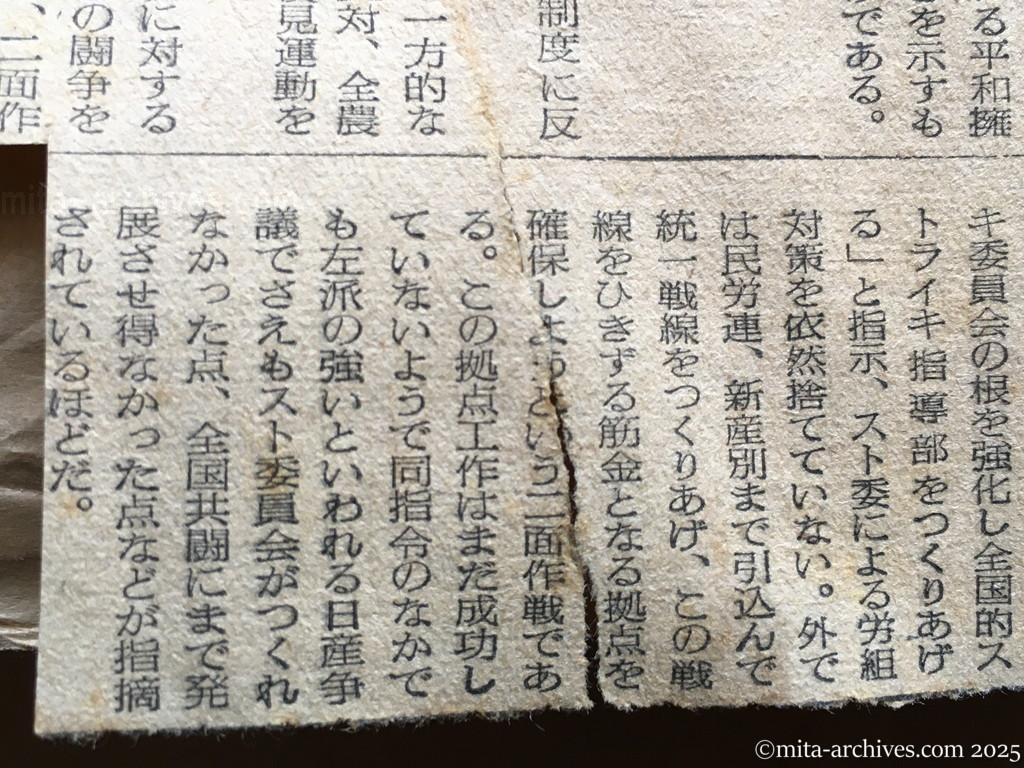 る平和擁
を示すも
である。
制度に反
一方的な
対、全農
見運動を
に対する
の闘争を
、二面作
キ委員会の根を強化し全国的ス
トライキ指導部をつくりあげ
る」と指示、スト委による労組
対策を依然捨てていない。外で
は民労連、新産別まで引込んで
統一戦線をつくりあげ、この戦
線をひきずる筋金となる拠点を
確保しようという二面作戦であ
る。この拠点工作はまだ成功し
ていないようで同指令のなかで
も左派の強いといわれる日産争
議でさえもスト委員会がつくれ
なかった点、全国共闘にまで発
展させ得なかった点などが指摘
されているほどだ。
mita-archives.com
©mita-archives.com 2025